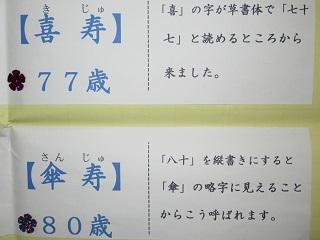 き じゅ
【喜 寿】
77歳
「喜」の字が草書体で「七十
七」と読めるところから
来ました。
さん じゅ
【傘 寿】
80歳
「八十」を縦書きにすると
「傘」の略字に見えること
からこう呼ばれます。